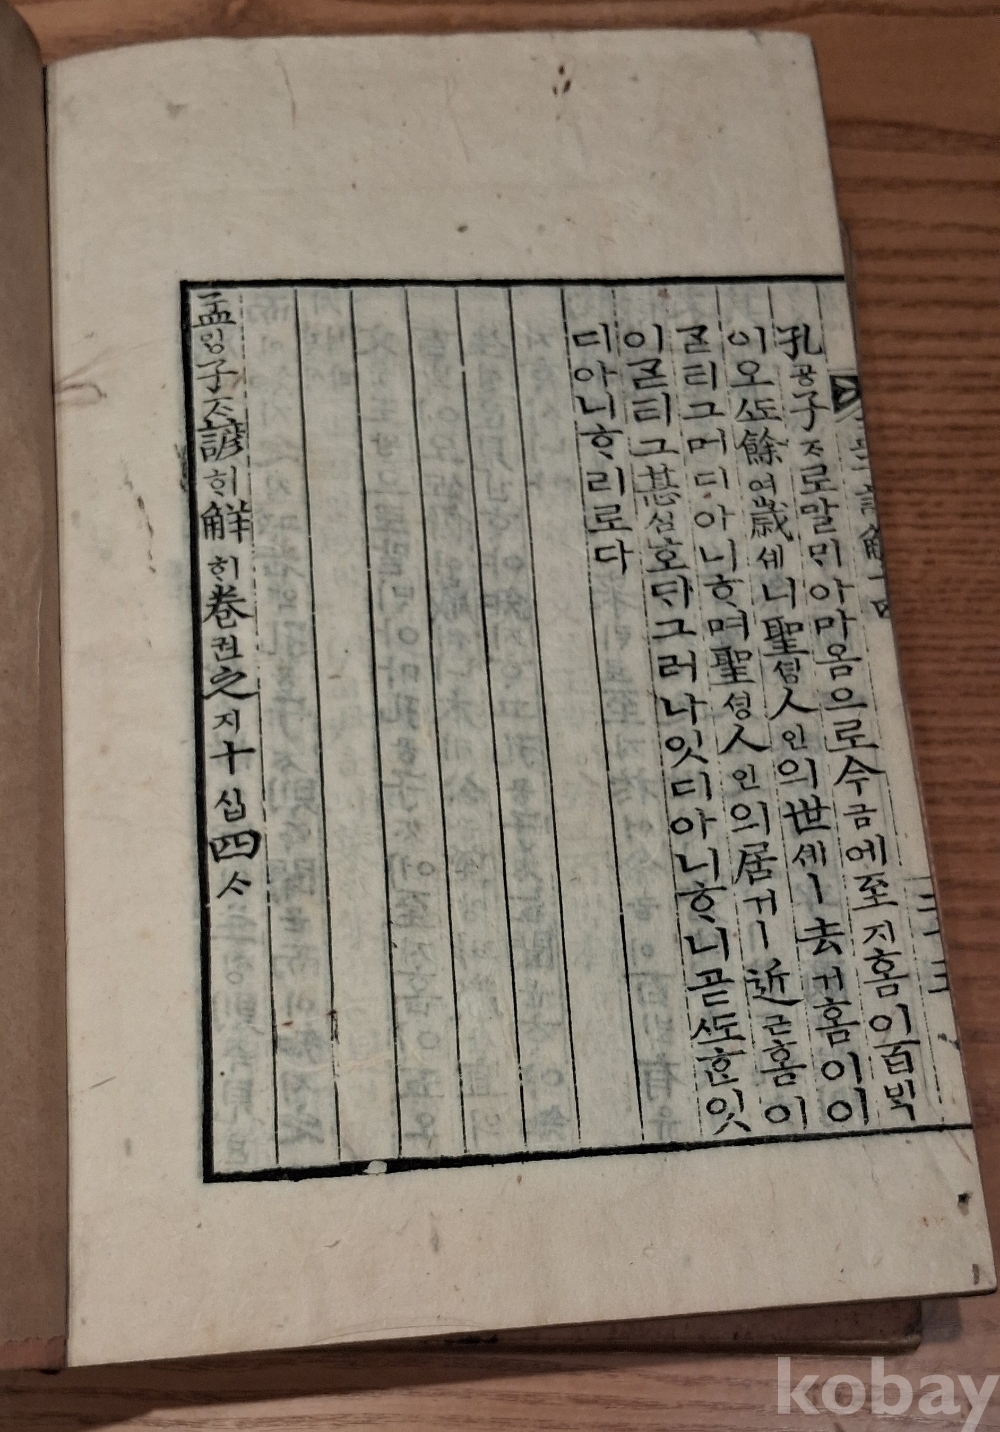 諺解十四
孔공子ᄌᆞ로말ᄆᆡ아마옴으로今금에至지홈이百ᄇᆡᆨ
이오ᄯᅩ餘여歲셰니聖셩人인의世셰ㅣ去거홈이이
ᄀᆞᆮ티그머디아니ᄒᆞ며聖셩人인의居거ㅣ近근홈이
이ᄀᆞᆮ티그甚심호ᄃᆡ그러나잇디아니ᄒᆞ니곧ᄯᅩᄒᆞᆫ잇
디아니ᄒᆞ리로다
孟ᄆᆡᆼ子ᄌᆞ諺ᄒᆡ解ᄒᆡ卷권之지十십四ᄉᆞ
kobay